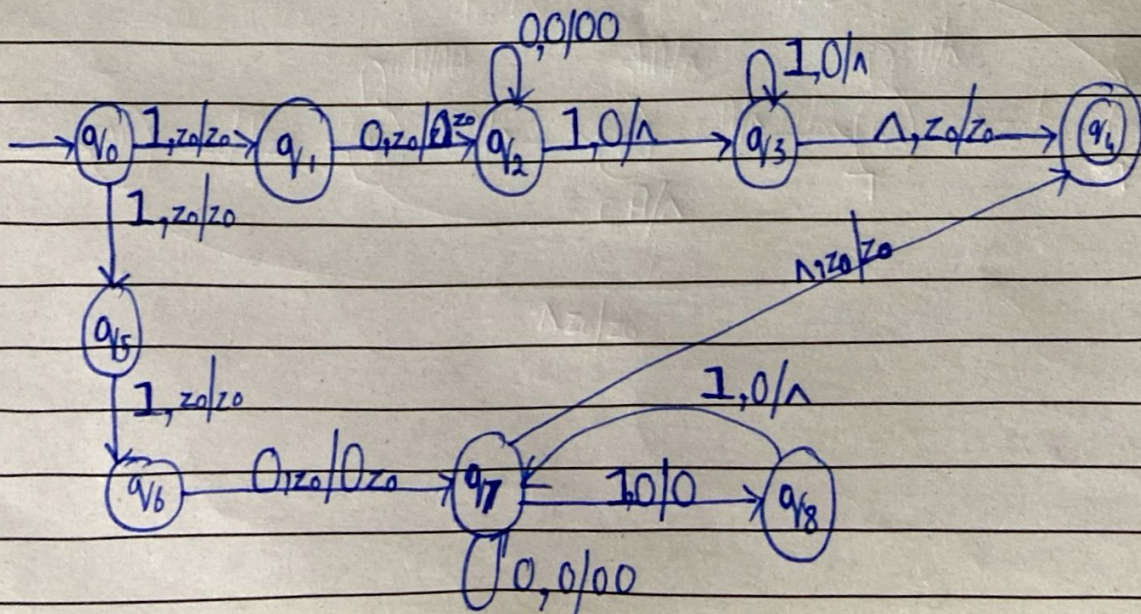 0,0/00
1,0/Λ
q0 1,z0/z0 q1 0,z0/0z0 q2 1,0/Λ q3 Λ,z0/z0 q4
1,z0/z0
Λ,z0/z0
q5
1,z0/z0
1,0/Λ
q6 0,z0/0z0 q7 1,0/0 q8
0,0/00